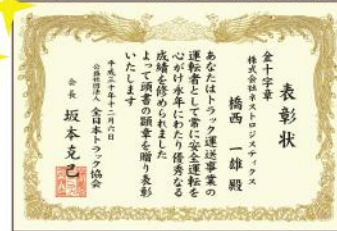 表彰状
金十字章
株式会社ネストロジスティクス
橋西 一雄殿
あなたはトラック運送事業の
運転者として常に安全運転を
心がけ永年にわたり優秀なる
成績を修められました
よって頭書の顕章を贈り表彰
いたします
平成三十年十二月六日
公益社団法人 全日本トラック協会
会長 坂本克己